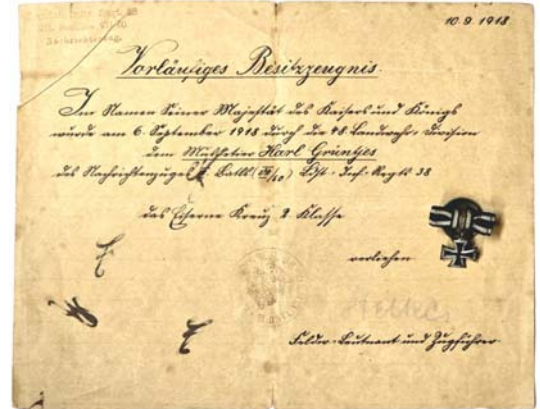 10.9.1918
Vorläufiges Besitzzeugnis.
Im Namen Seiner Majestät des Kaisers und Königs
wurde am 6. September 1918 durch die 48. Landwehr-Division
dem Musketier Karl Grüntjes
des Nachrichtenzuges Batls. Ldst. Inf. Regts. 38
das Eiserne Kreuz 2. Klasse
verliehen
Feldw. Leutnant und Zugführer.